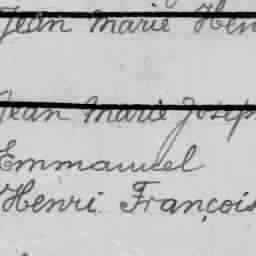 Jean Marie Hen
Jean Marie Joseph
Emmanuel
Henri François